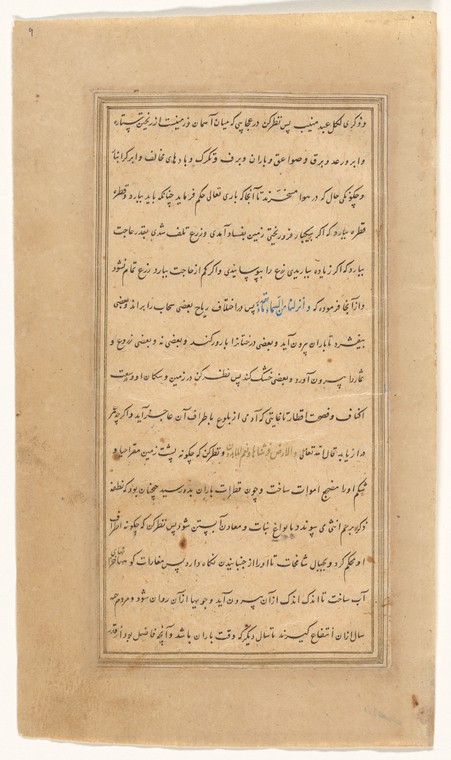 و ذکری لکل عبد منیب پس نظر کن در عجایبی که میان آسمان و زمینست از ریختن ستاره
و ابر و رعد و برق و صواعق و باران و برف و تکرک و بادهای مخالف و ابر کرانبار
و چکونکی حال که در هوا مسخرند تا آنجا که باری تعالی حکم فرماید چنانکه باید ببارد و قطره
قطره ببارد که اکر بیکبار فرو ریختی زمین بفساد آمدی و زرع تلف شدی بقدر حاجت
ببارد که اکر زیاده بباریدی زرع را بپوسانیدی و اکر کم از حاجت ببارد زرع تمام نشود
و از آنجا فرموده که و أنزلنا من السماء ماء بقدر پس در اختلاف ریاح بعضی سحاب را براند و بعضی
بیفشرد تا باران برون آید و بعضی درختانرا بارور کند و بعضی نه و بعضی زروع و
ثمار را پرون آورد و بعضی خشک کند پس نظر کن در زمین و سکان او و وسعت
اکناف و فسحت اقطار تا غایتی که آدمی از بلوغ باطراف آن عاجز آید و اکرچه عمر
دراز یابد قال الله تعالی و الارض فرشناها فنعم الماهدون و نظر کن که چکونه پشت زمین مقر احیا و
شکم او را مضجع اموات ساخت و چون قطرات باران بدو رسید همچنان بود که نطفه
ذکر برحم انثی می پیوندد بانواع نبات و معادن آبستن شود پس نظر کن که چکونه اطراف
او محکم کرد و بجبال شامخات تا او را از جنبانیدن نکاه دارد پس مغارات کوهها خزانهای
آب ساخت تا اندک اندک از آن پرون آید و جویها از آن روان شود و مردم همه
سال از آن انتفاع کیرند تا سال دیکر که وقت باران باشد و آنچه فاضل بود از